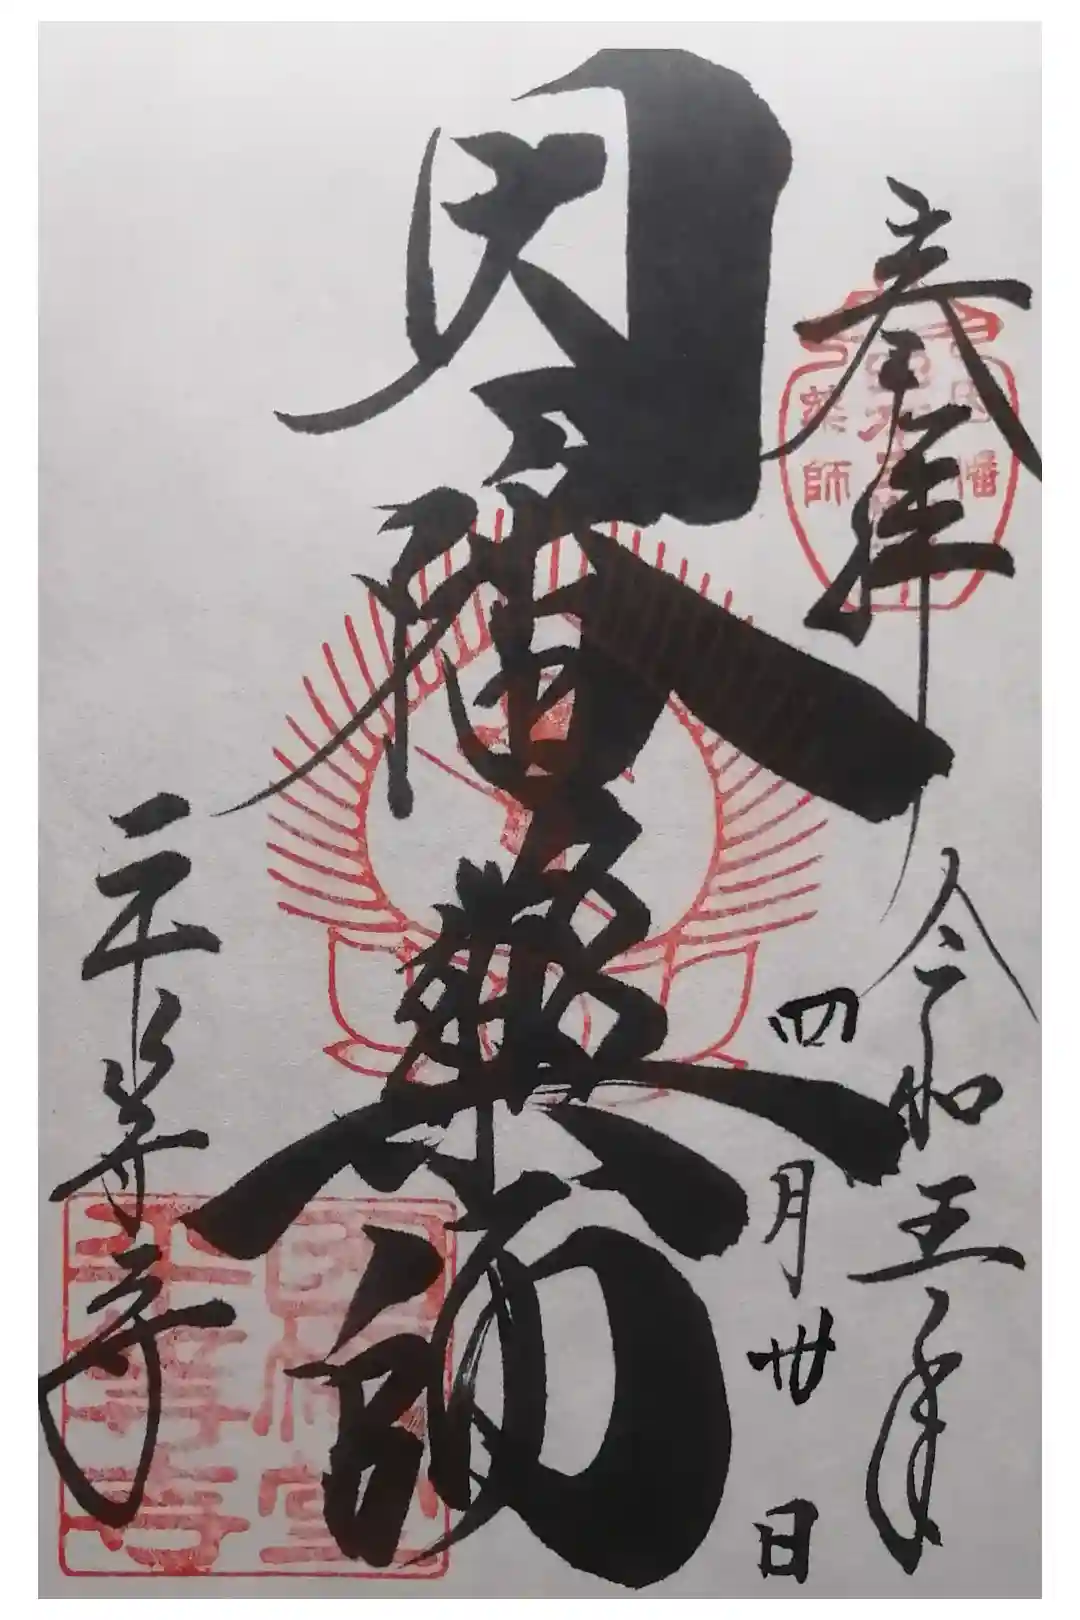 奉拝
令和五年
四月卅日
因幡薬師
平等寺
因幡
薬師
因幡堂
平等寺